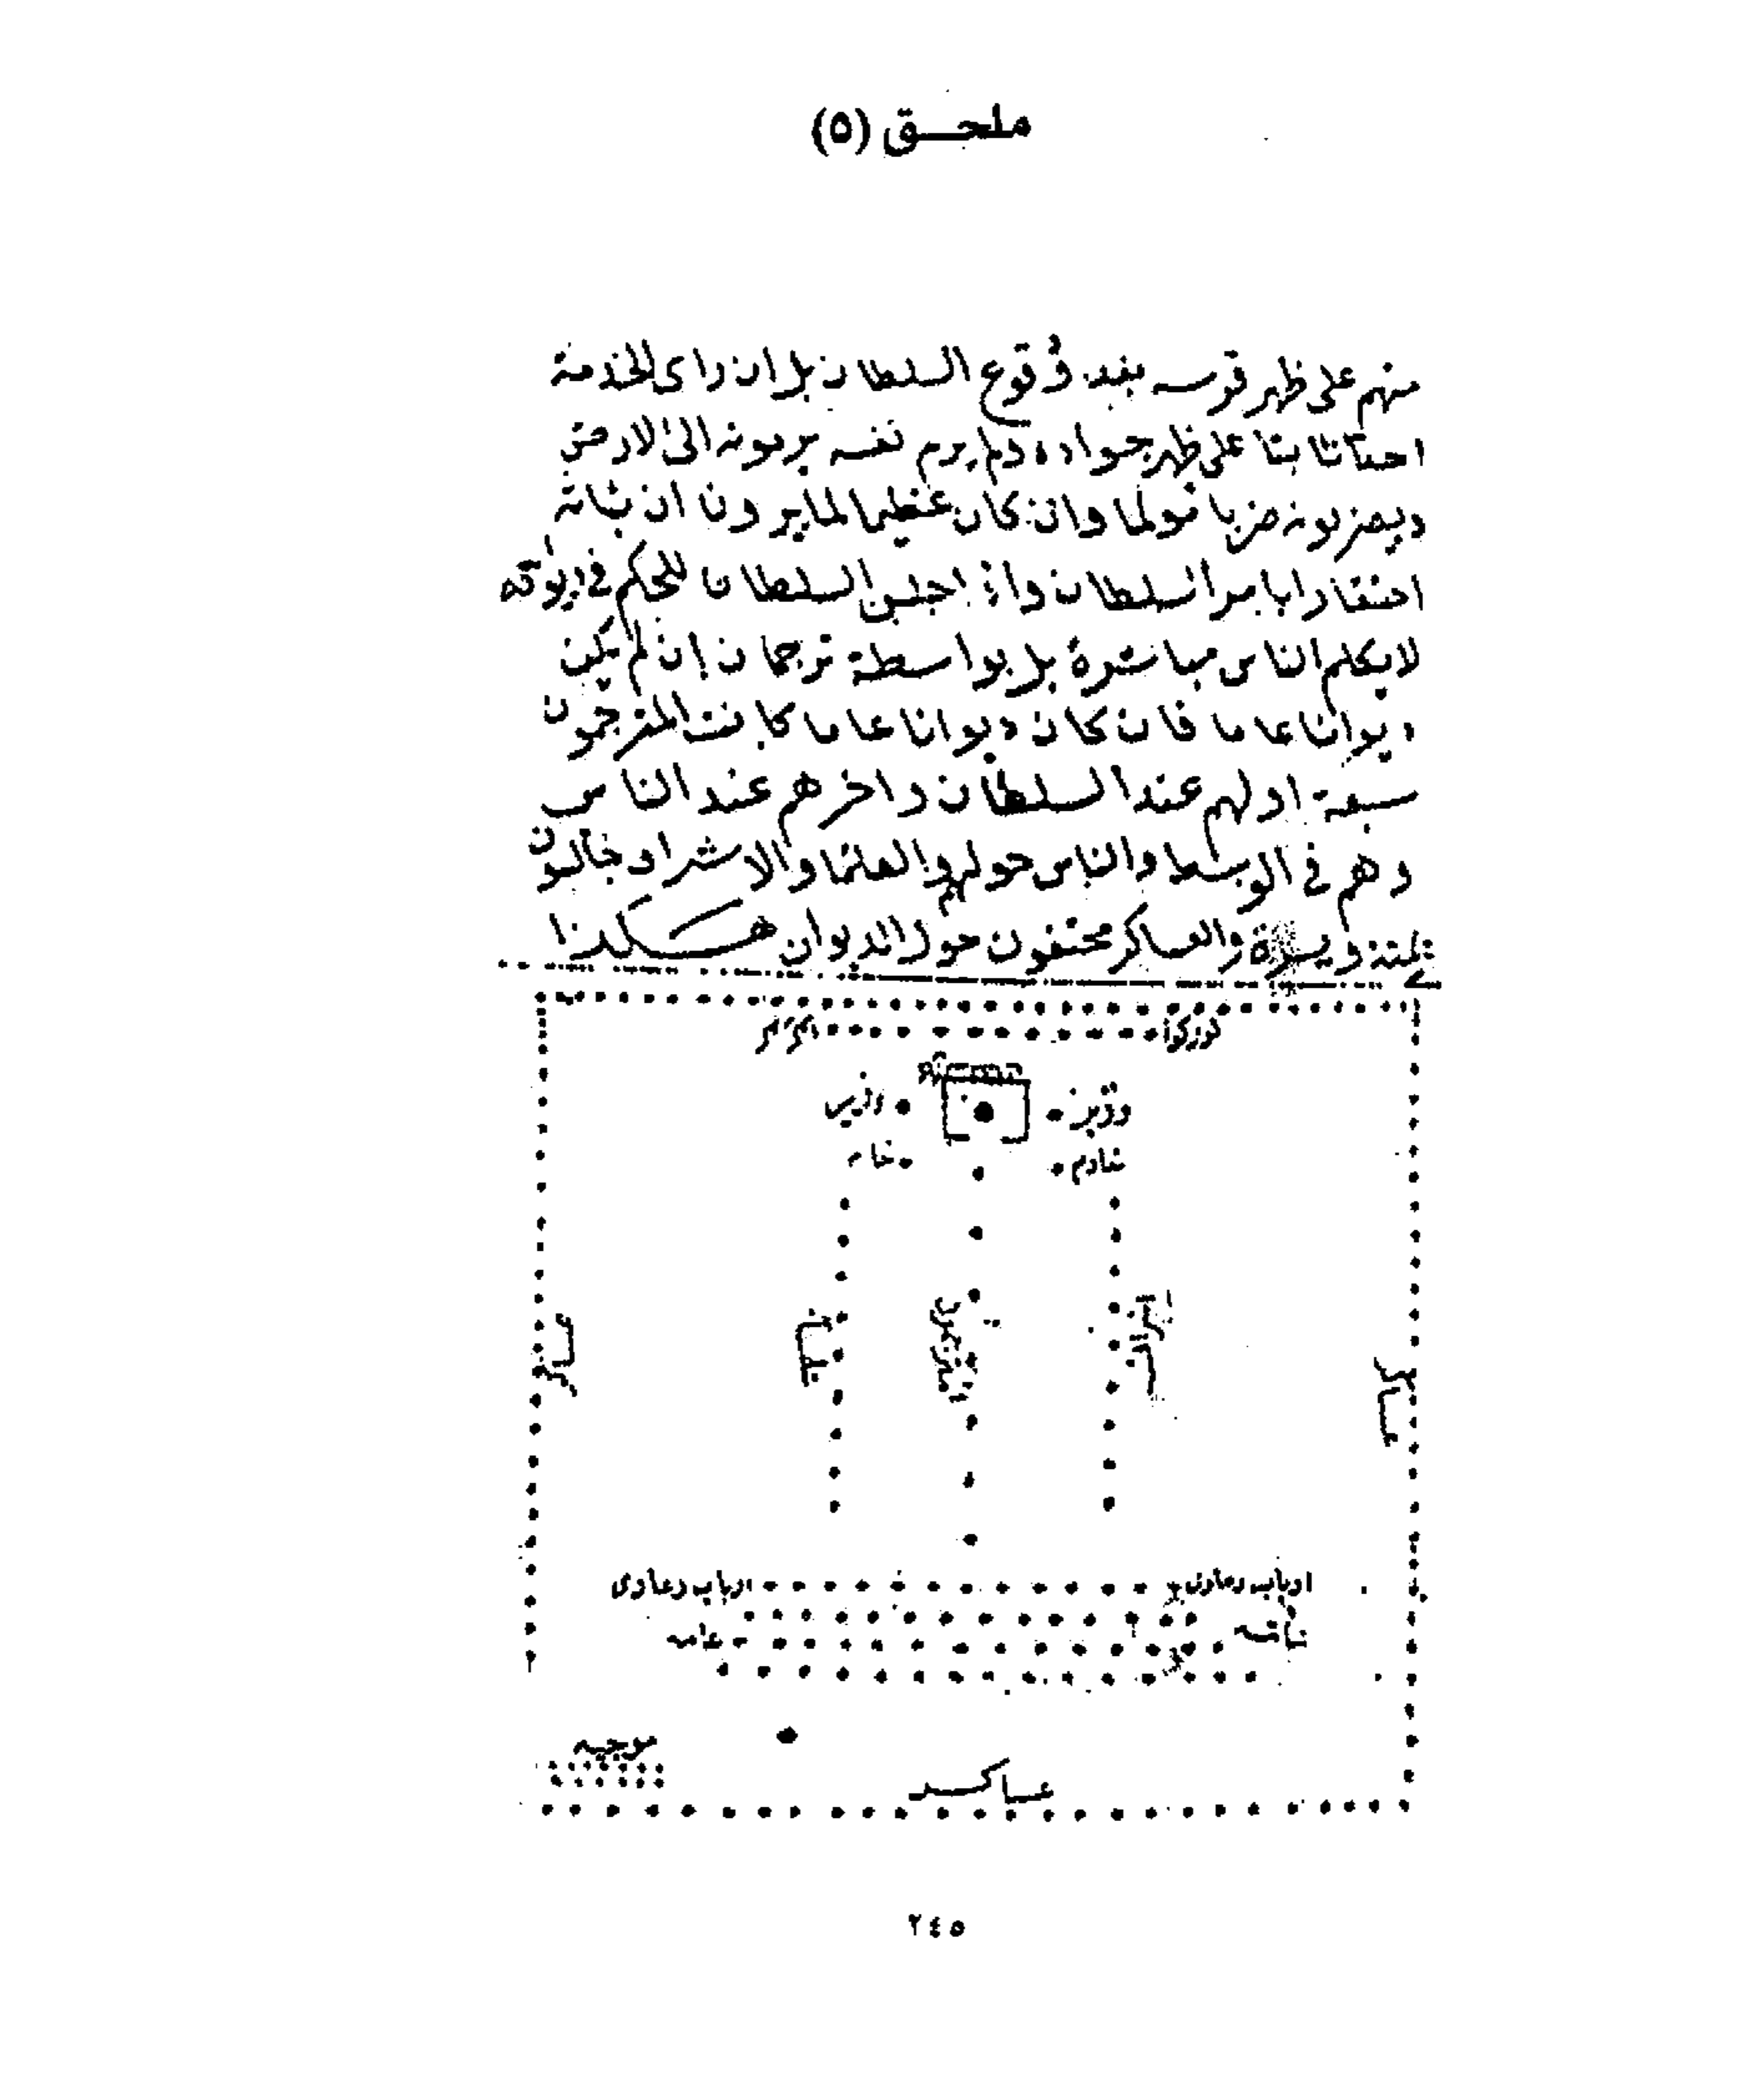 ملحـــق (٥)
منهم على ظهر فرسه بعد وقوع السلطان بل ان راى للخدمة
احدا ثابتا على ظهر جواده ولم يرم نفسه يرمونه الى الارض
ويضربونه ضربا مولما وان كان عظيما لما يرون ان ثباته
احتقارا بامر السلطان واذا جلس السلطان للحكم فى ديوانه
لا يكلم الناس مباشرة بل بواسطة ترجمان ان لم يكن
ديوانا عاما فان كان ديوانا عاما كانت المترجمون
سبعة اولهم عند السلطان واخرهم عند الناس
وهم فى الوسط والناس حولهم والعلما والاشراف جالسون
يمنة ويسرة والعساكر محتفون حول الديوان هكذا
كوركوا
وزير
وزير
خادم
عساكر
عساكر
ارباب دعاوى
ارباب دعاوى
عامه
موجيه
عساكر
٢٤٥